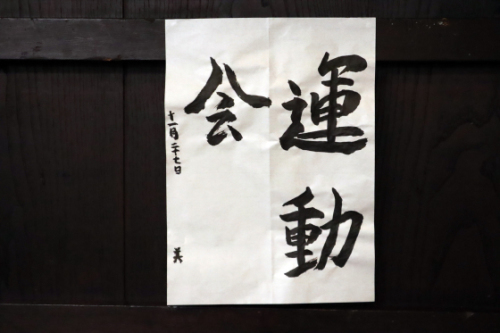 運動
会
十一月二十七日
美